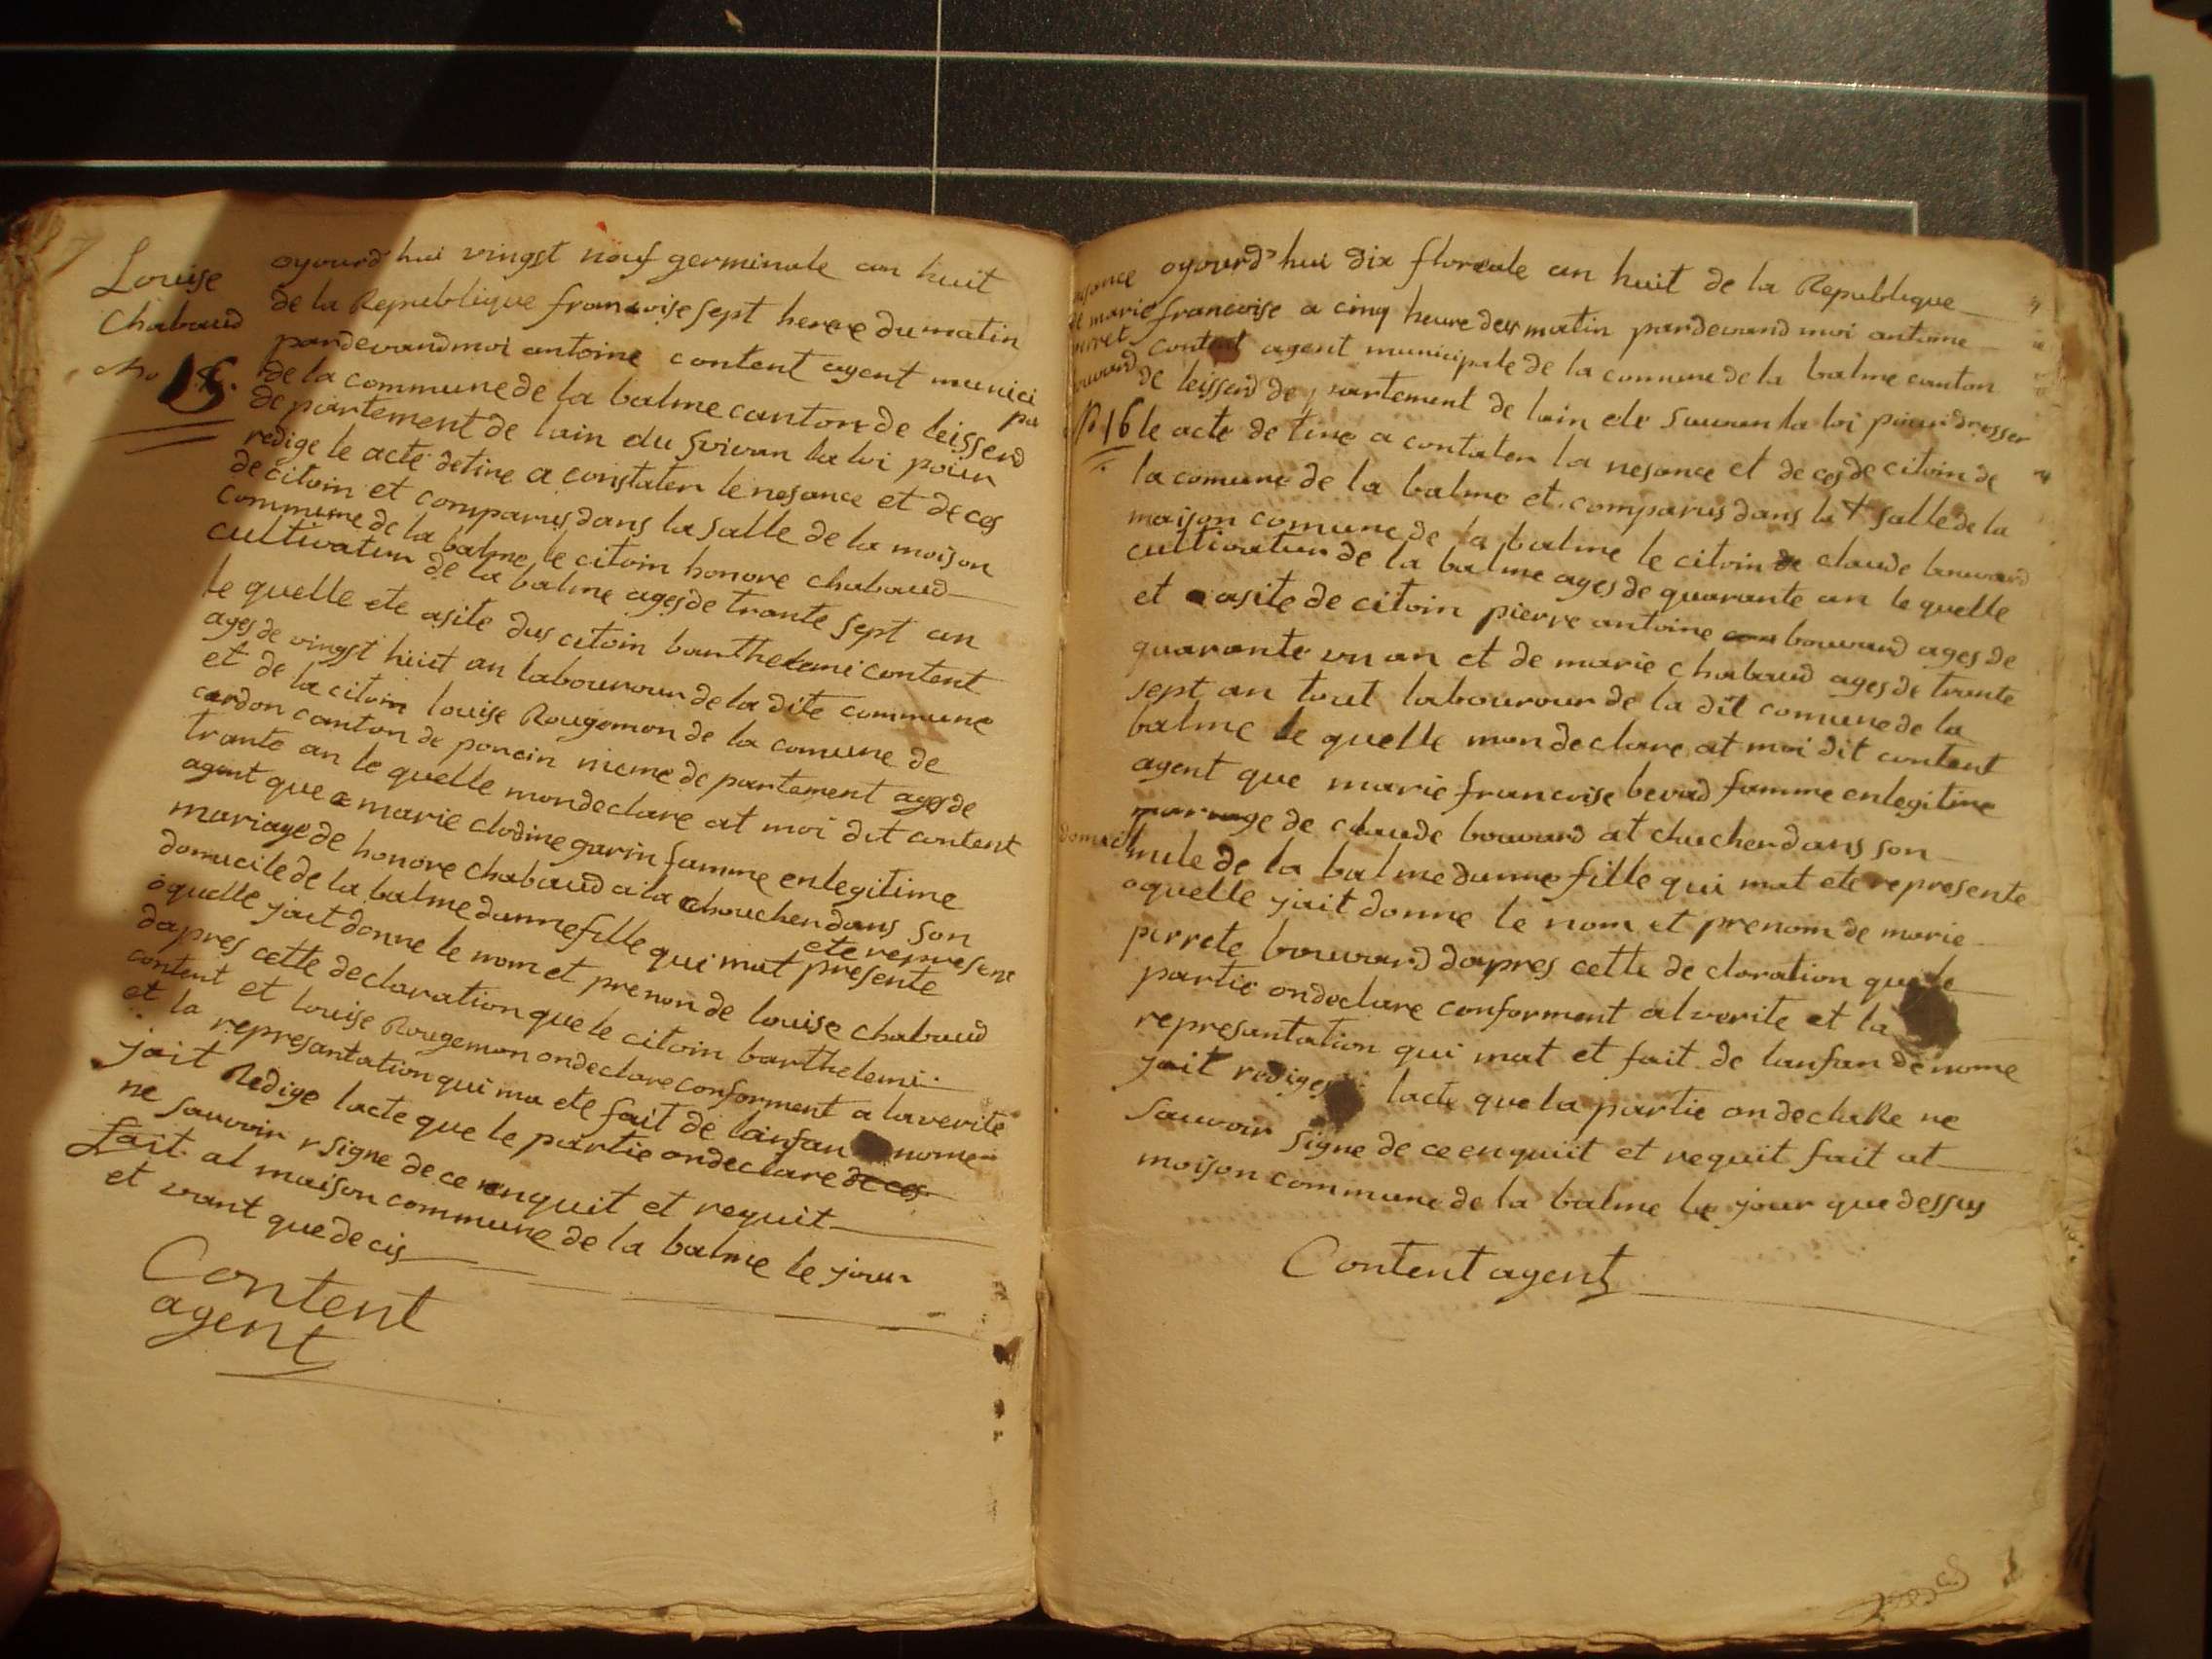 Louise
Chabaud
No 15.
oyourd'hui vingst nouf germinale an huit
de la Republique francoise sept herere du matin
pardevand moi antoine content agent munici
pa
de la commune de la balme canton de leissend
de partement de lain elu suivan la loi pour
redige le acte detine a constater le nesance et de ces
de citoin et comparus dans la salle de la moison
commune de la balme le citoin honore chabaud
cultivateur de la balme ages de trante sept an
le quelle ete asite dus citoin barthelemi content
ages de vingst huit an labourour de la dite commune
et de la citoin louise Rougemon de la comune de
cerdon canton de poncin meme de partement ages de
trante an le quelle mon declare at moi dit content
agent que marie clodine garin famme enlegitime
mariage de honore chabaud a la choucher dans son
domucile de la balme dunne fille qui mat presente
ete represent
oquelle jait donne le nom et prenon de louise chabaud
dapres cette declaration que le citoin barthelemi
content et louise Rougemon ondeclare conforment a la verite
et la represantation qui ma ete fait de lanfan nome
jait Redige lacte que le partie ondeclare de ces
ne sauvoir rsigne de ce enquit et requit
fait al maison commune de la balme le jour
et vant que de cis
Content
agent
nesance
de marie
perret
bouvard
No 16
oyourd'hui dix floreale an huit de la Republique
francoise a cinq heure deu matin pardevand moi antoine
content agent municipale de la comune de la balme canton
de leissend de partement de lain ele suivan la loi pour dresser
le acte de tine a contater la nesance et de ces de citoin de
la comune de la balme et comparus dans la + salle de la
maison comune de la balme le citoin de claude bouvard
cultivateur de la balme ages de quarante an le quelle
et asite de citoin pierre antoine bouvard ages de
quarante un an et de marie chabaud ages de trante
sept an tout labourour de la dit comune de la
balme le quelle mon declare at moi dit content
agent que marie francoise bevad famme enlegitime
marriage de claude bouvard at chucher dans son
domici
mile de la balme dunne fille qui mat ete represente
oquelle jait donne le nom et prenom de marie
perrete bouvard dapres cette de claration que le
partie ondeclare conforment al verite et la
represantation qui mat et fait de lanfan denome
jait rediges lacte que la partie on declare ne
sauvoir signe de ce enquiit et requit fait at
moison commune de la balme le jour que dessus
Content agent